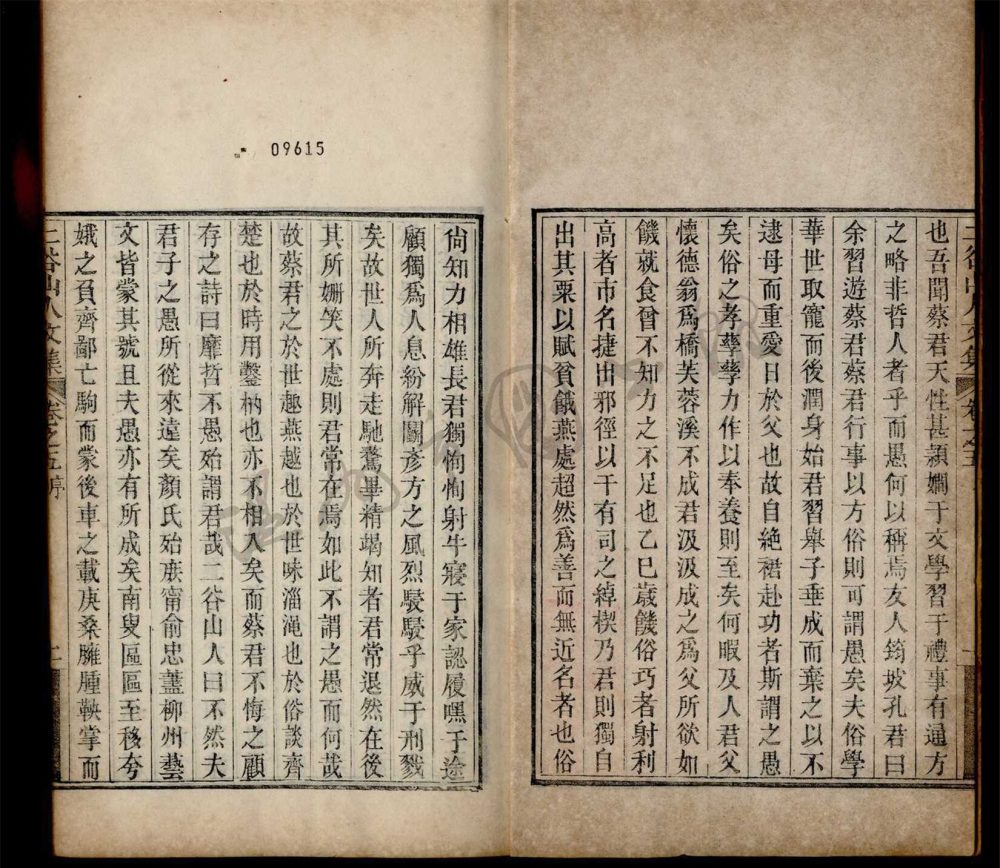 也吾聞蔡君天性甚穎嫺于文學習于禮事有通方
之略非哲人者乎而愚何以稱焉友人筠坡孔君曰
余習遊蔡君蔡君行事以方俗則可謂愚矣夫俗學
華世取寵而後潤身始君習舉子垂成而葉之以不
逮母而重愛日於父也故自絶裙赴功者斯謂之愚
矣俗之孝孳孳力作以奉養則至矣何暇及人君父
懷德翁爲橋芙蓉溪不成君汲汲成之爲父所欲如
饑就食曾不知力之不足也乙巳歲饑俗巧者射利
高者市名捷出邪徑以干有司之綽楔乃君則獨自
出其粟以賦貧餓燕處超然爲善而無近名者也俗
尙知力相雄長君獨恂恂射牛寢于家認履嘿于途
顧獨爲人息紛解鬭彥方之風烈駸駸乎威于刑戮
矣故世人所奔走馳騖畢精竭知者君常退然在後
其所姍笑不處則君常在焉如此不謂之愚而何哉
故蔡君之於世趣燕越也於世味淄澠也於俗談齊
楚也於時用鑿枘也亦不相入矣而蔡君不悔之顧
存之詩曰靡哲不愚殆謂君哉二谷山人曰不然夫
君子之愚所從來遠矣顏氏殆庶甯俞忠藎柳州藝
文皆蒙其號且夫愚亦有所成矣南叟區區至移夸
娥之負齊鄙亡駒而蒙後車之載庚桑臃腫鞅掌而
二谷山人文集
卷之五序
09615